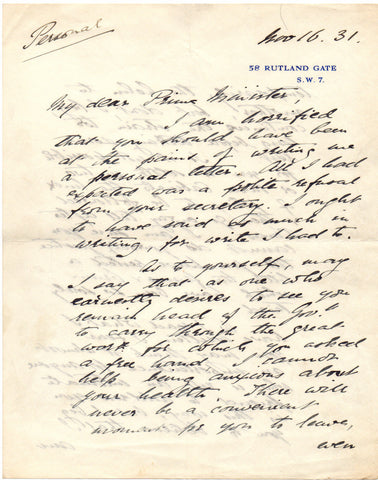 Personal
Nov 16. 31.
58 RUTLAND GATE
S.W. 7.
My dear Prime Minister,
I am horrified
that you should have been
at the pains of writing me
a personal letter. All I had
expected was a polite refusal
from your secretary. I ought
to have said as much in
writing, for write I had to.
As to yourself, may
I say that as one who
earnestly desires to see you
remain head of the Gov.t
to carry through the great
work for which you asked
a free hand I cannot
help being anxious about
your health. There will
never be a convenient
moment for you to leave,
even